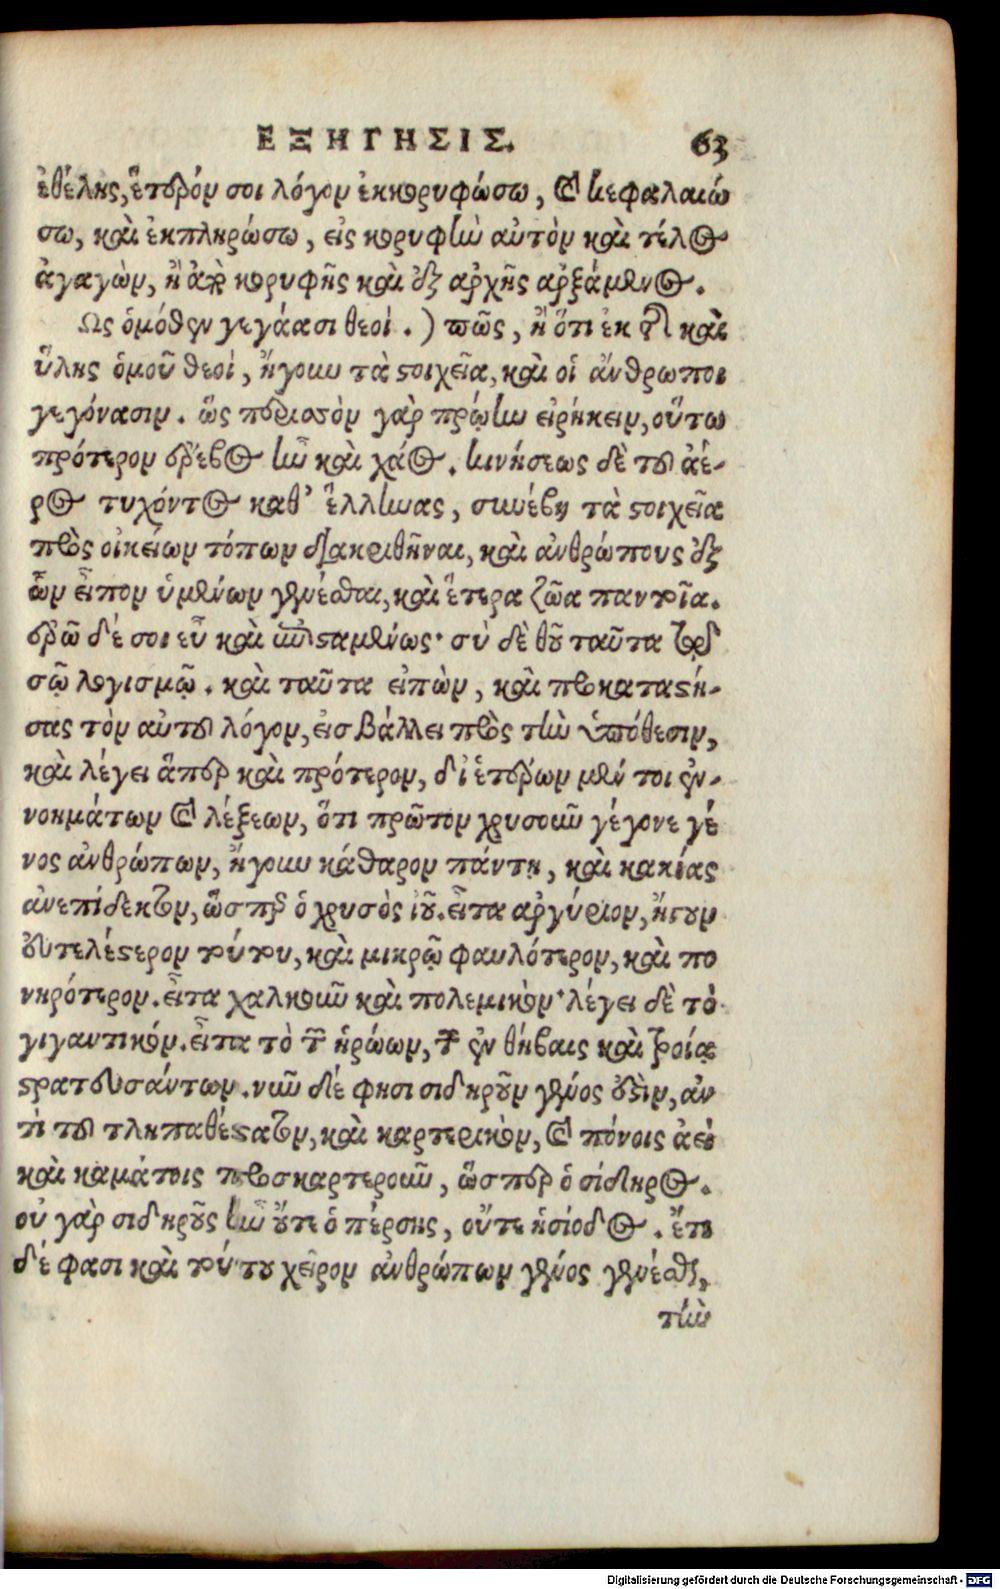 ΕΞΗΓΗΣΙΣ. 63
ἐθέλῃς, ἕτερόν σοι λόγον ἐκκορυφώσω, καὶ κεφαλαιώ
σω, καὶ ἐκπληρώσω, εἰς κορυφὴν αὐτὸν καὶ τέλος
ἀγαγὼν, ἢ ἀπὸ κορυφῆς καὶ ἐξ ἀρχῆς ἀρξάμενος.
Ως ὁμόθεν γεγάασι θεοί.) πῶς, ἢ ὅτι ἐκ τῆς καὶ
ὕλης ὁμοῦ θεοὶ, ἤγουν τὰ στοιχεῖα, καὶ οἱ ἄνθρωποι
γεγόνασιν. ὥς περ ὸν γὰρ πρώην εἰρήκειν, οὕτω
πρότερον ἔρεβος ἦν καὶ χάος. κινήσεως δὲ τοῦ ἀέ-
ρος τυχόντος καθ' ἕλληνας, συνέβη τὰ στοιχεῖα
πρὸς οἰκείων τόπων διακριθῆναι, καὶ ἀνθρώπους ἐξ
ὧν εἶπον ὑμένων γενέσθαι, καὶ ἕτερα ζῶα παντοῖα.
ἐρῶ δέ σοι εὖ καὶ ἐπισταμένως· σὺ δὲ θοῦ ταῦτα ἐν
σῷ λογισμῷ. καὶ ταῦτα εἰπὼν, καὶ προκαταστή-
σας τὸν αὐτοῦ λόγον, εἰσβάλλει πρὸς τὴν ὑπόθεσιν,
καὶ λέγει ἅπερ καὶ πρότερον, δι' ἑτέρων μέν τοι ἐν-
νοημάτων καὶ λέξεων, ὅτι πρῶτον χρυσοῦν γέγονε γέ
νος ἀνθρώπων, ἤγουν κάθαρον πάντη, καὶ κακίας
ἀνεπίδεκτον, ὥσπερ ὁ χρυσὸς ἰοῦ. εἶτα ἀργύριον, ἤγουν
εὐτελέστερον τούτου, καὶ μικρῷ φαυλότερον, καὶ πο
νηρότερον. εἶτα χαλκοῦν καὶ πολεμικὸν· λέγει δὲ τὸ
γιγαντικόν. εἶτα τὸ τῶν ἡρώων, τῶν ἐν θήβαις καὶ τροίᾳ
στρατευσάντων. νῦν δέ φησι σιδηροῦν γένος ἐστὶν, ἀν
τὶ τοῦ τληπαθέστατον, καὶ καρτερικὸν, καὶ πόνοις ἀεὶ
καὶ καμάτοις προσκαρτεροῦν, ὥσπερ ὁ σίδηρος.
οὐ γὰρ σιδηροῦς ἦν οὔτε ὁ πέρσης, οὔτε ἡσίοδος. ἔτι
δέ φασι καὶ τούτου χεῖρον ἀνθρώπων γένος γενέσθαι,
τὴν
Digitalisierung gefördert durch die Deutsche Forschungsgemeinschaft - DFG